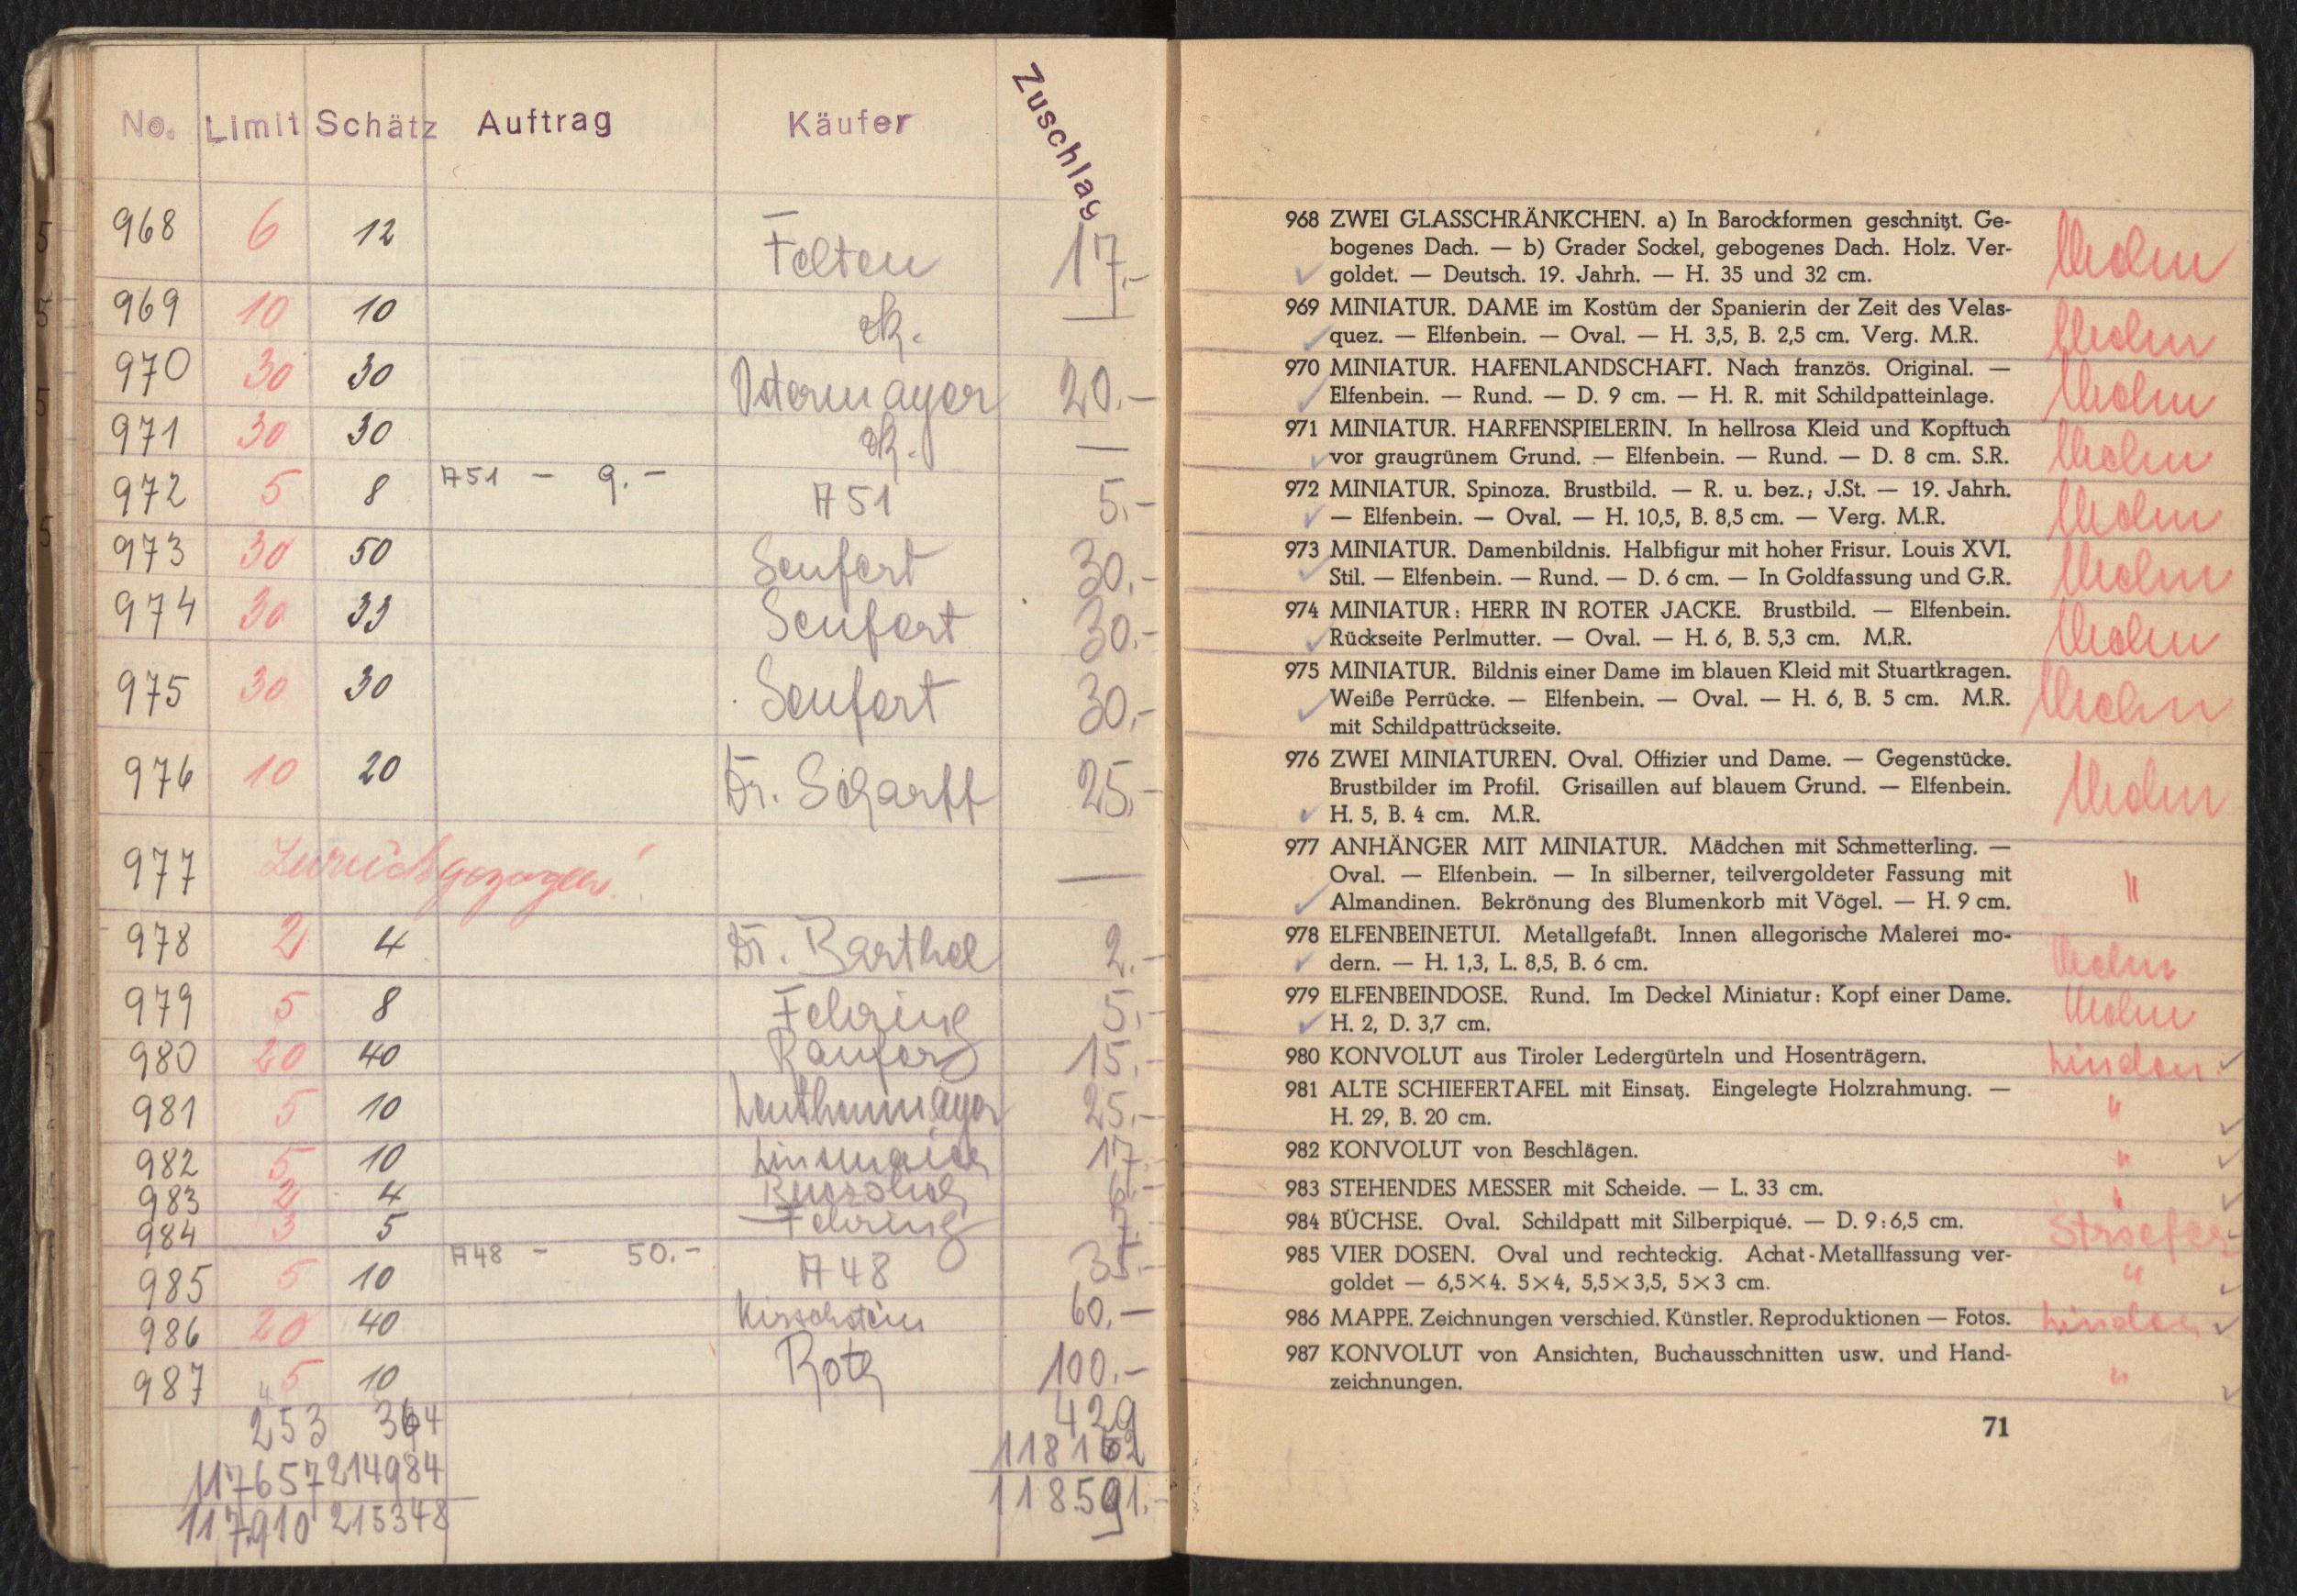 No. Limit Schätz Auftrag Käufer Zuschlag
968 6 12 Felten 17.-
969 10 10 zk. —
970 30 30 Ostermayer 20.-
971 30 30 zk. —
972 5 8 A51 - 9.- A51 5.-
973 30 50 Seufert 30.-
974 30 33 Seufert 30.-
975 30 30 Seufert 30.-
976 10 20 Dr. Scharff 25.-
977 Zurückgezogen! —
978 2 4 Dr. Barthel 2.-
979 5 8 Fehring 5.-
980 20 40 15.-
981 5 10 25.-
982 5 10 Linsmaier 17.-
983 2 4 6.-
984 3 5 Fehring 7.-
985 5 10 A48 - 50.- A48 35.-
986 20 40 Kirschstein 60.-
987 5 10 Roth 100.-
253 364 429
117657 214984 118162
117910 215348 118591.-
968 ZWEI GLASSCHRÄNKCHEN. a) In Barockformen geschnitzt. Ge-
bogenes Dach. — b) Grader Sockel, gebogenes Dach. Holz. Ver-
goldet. — Deutsch. 19. Jahrh. — H. 35 und 32 cm.
969 MINIATUR. DAME im Kostüm der Spanierin der Zeit des Velas-
quez. — Elfenbein. — Oval. — H. 3,5, B. 2,5 cm. Verg. M.R.
970 MINIATUR. HAFENLANDSCHAFT. Nach französ. Original. —
Elfenbein. — Rund. — D. 9 cm. — H. R. mit Schildpatteinlage.
971 MINIATUR. HARFENSPIELERIN. In hellrosa Kleid und Kopftuch
vor graugrünem Grund. — Elfenbein. — Rund. — D. 8 cm. S.R.
972 MINIATUR. Spinoza. Brustbild. — R. u. bez.; J.St. — 19. Jahrh.
— Elfenbein. — Oval. — H. 10,5, B. 8,5 cm. — Verg. M.R.
973 MINIATUR. Damenbildnis. Halbfigur mit hoher Frisur. Louis XVI.
Stil. — Elfenbein. — Rund. — D. 6 cm. — In Goldfassung und G.R.
974 MINIATUR: HERR IN ROTER JACKE. Brustbild. — Elfenbein.
Rückseite Perlmutter. — Oval. — H. 6, B. 5,3 cm. M.R.
975 MINIATUR. Bildnis einer Dame im blauen Kleid mit Stuartkragen.
Weiße Perrücke. — Elfenbein. — Oval. — H. 6, B. 5 cm. M.R.
mit Schildpattrückseite.
976 ZWEI MINIATUREN. Oval. Offizier und Dame. — Gegenstücke.
Brustbilder im Profil. Grisaillen auf blauem Grund. — Elfenbein.
H. 5, B. 4 cm. M.R.
977 ANHÄNGER MIT MINIATUR. Mädchen mit Schmetterling. —
Oval. — Elfenbein. — In silberner, teilvergoldeter Fassung mit "
Almandinen. Bekrönung des Blumenkorb mit Vögel. — H. 9 cm.
978 ELFENBEINETUI. Metallgefaßt. Innen allegorische Malerei mo-
dern. — H. 1,3, L. 8,5, B. 6 cm.
979 ELFENBEINDOSE. Rund. Im Deckel Miniatur: Kopf einer Dame.
H. 2, D. 3,7 cm.
980 KONVOLUT aus Tiroler Ledergürteln und Hosenträgern. Lindon
981 ALTE SCHIEFERTAFEL mit Einsatz. Eingelegte Holzrahmung. — "
H. 29, B. 20 cm.
982 KONVOLUT von Beschlägen. "
983 STEHENDES MESSER mit Scheide. — L. 33 cm. "
984 BÜCHSE. Oval. Schildpatt mit Silberpiqué. — D. 9:6,5 cm.
985 VIER DOSEN. Oval und rechteckig. Achat-Metallfassung ver-
goldet — 6,5×4. 5×4, 5,5×3,5, 5×3 cm. "
986 MAPPE. Zeichnungen verschied. Künstler. Reproduktionen — Fotos. Lindon
987 KONVOLUT von Ansichten, Buchausschnitten usw. und Hand-
zeichnungen. "
71